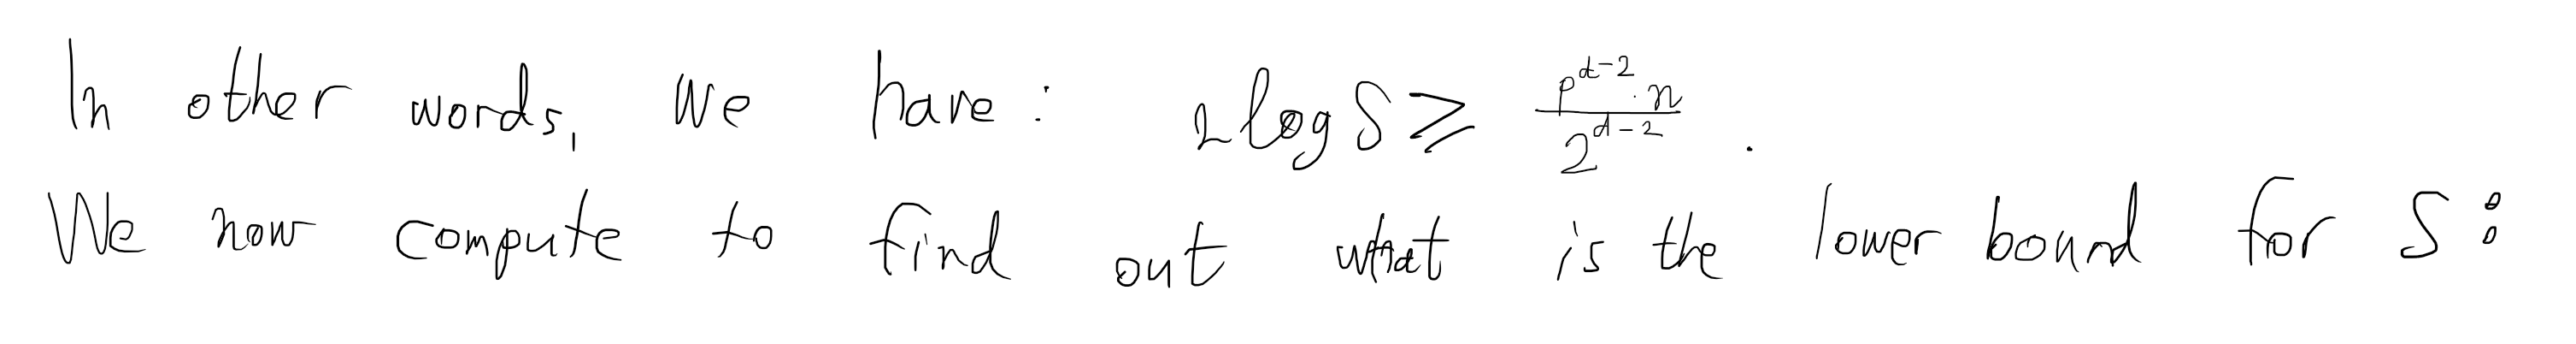 In other words, we have: 2 log S ≥ \frac{p^{d-2} \cdot n}{2^{d-2}}.
We now compute to find out what is the lower bound for S: